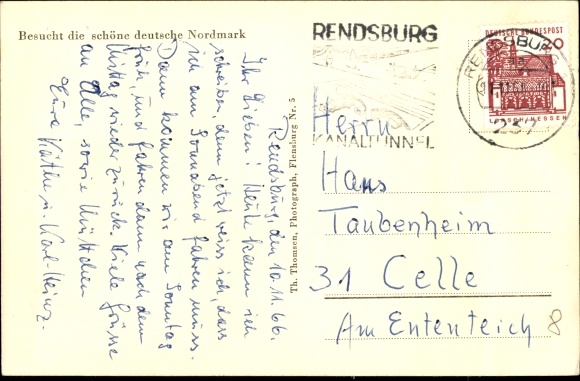 Besucht die schöne deutsche Nordmark
Rendsburg, den 10.11.66.
Ihr Lieben! Heute kann ich
schreiben, denn jetzt weiss ich, dass
ich am Sonnabend fahren muss.
Dann kommen wir am Sonntag
früh, und fahren dann nach dem
Mittag wieder zurück. Viele Grüsse
an Alle, sowie Muttchen
Eure Käthe u. Karl-Heinz.
Th. Thomsen, Photograph, Flensburg Nr. 5
RENDSBURG
KANALTUNNEL
RENDSBURG
237
DEUTSCHE BUNDESPOST
20
LORSCH/HESSEN
Herrn
Hans
Taubenheim
31 Celle
Am Ententeich 8